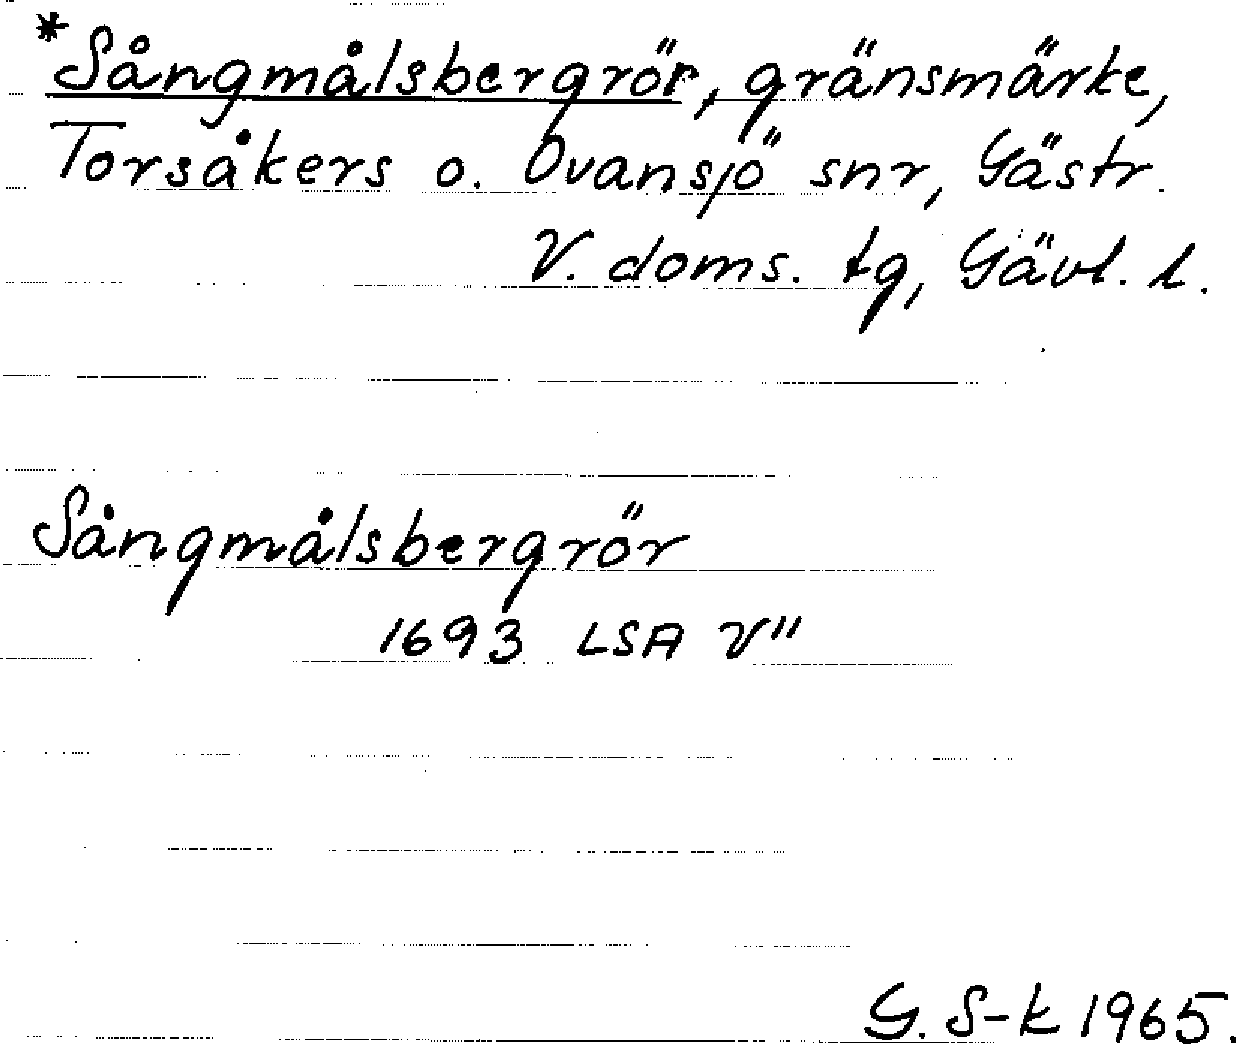 *Sångmålsbergrör, gränsmärke,
Torsåkers o. Ovansjö snr, Gästr.
V. doms. tg, Gävl. l.
Sångmålsbergrör
1693 LSA V"
G. S-k 1965.